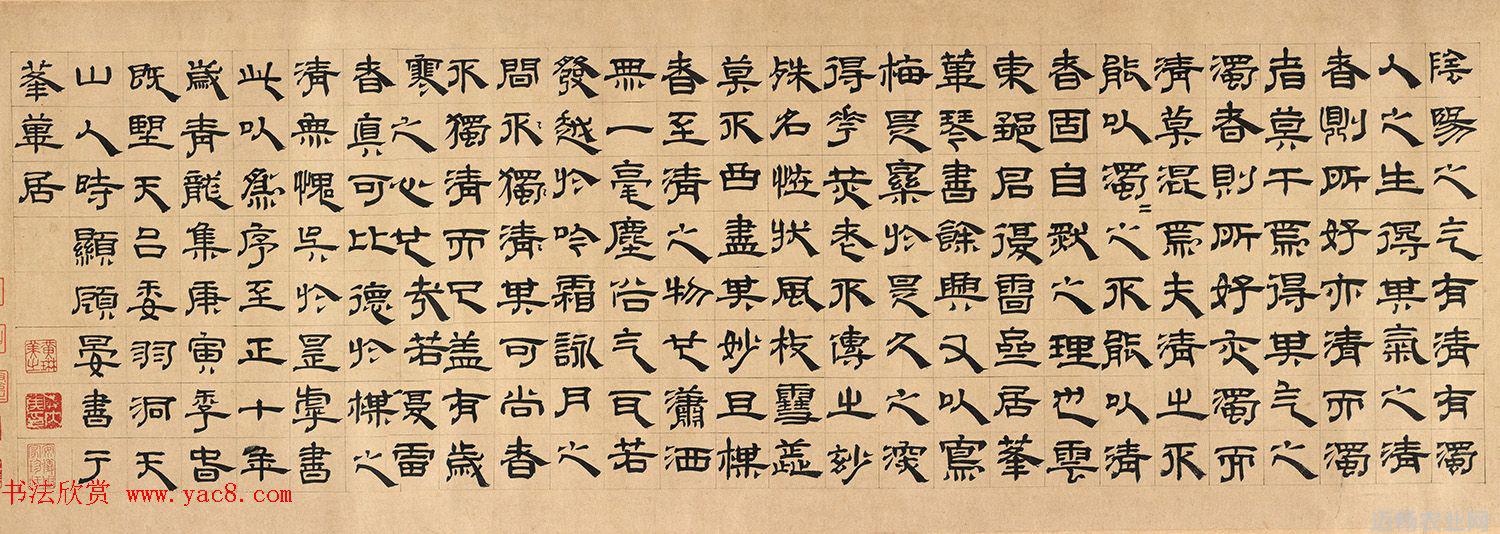 陰陽之气有清有濁
人之生得其氣之清
者則所好亦清而濁
者莫干焉得其气之
濁者則所好亦濁而
清莫混焉夫清之不
能以濁=之不能以清
者固自然之理也雲
東君居峯
蓽琴書餘興又以寫
梅是於是久之深
得花老不傳之妙
殊名怪狀風枝雪蕊
莫不盡其妙且楳
者至清之物也瀟洒
無一毫塵俗气若
發越於吟霜詠月之
間不獨清其可尚者
不獨清而已蓋有歲
寒之心也哉若夏雷
者真可比德於楳之
清無愧矣於是乎書
此以為序至正十年
歲青龍集庚寅季春
既朢天台委羽洞天
山人時顯顧晏書于
峯蓽居
书法欣赏 www.yac8.com